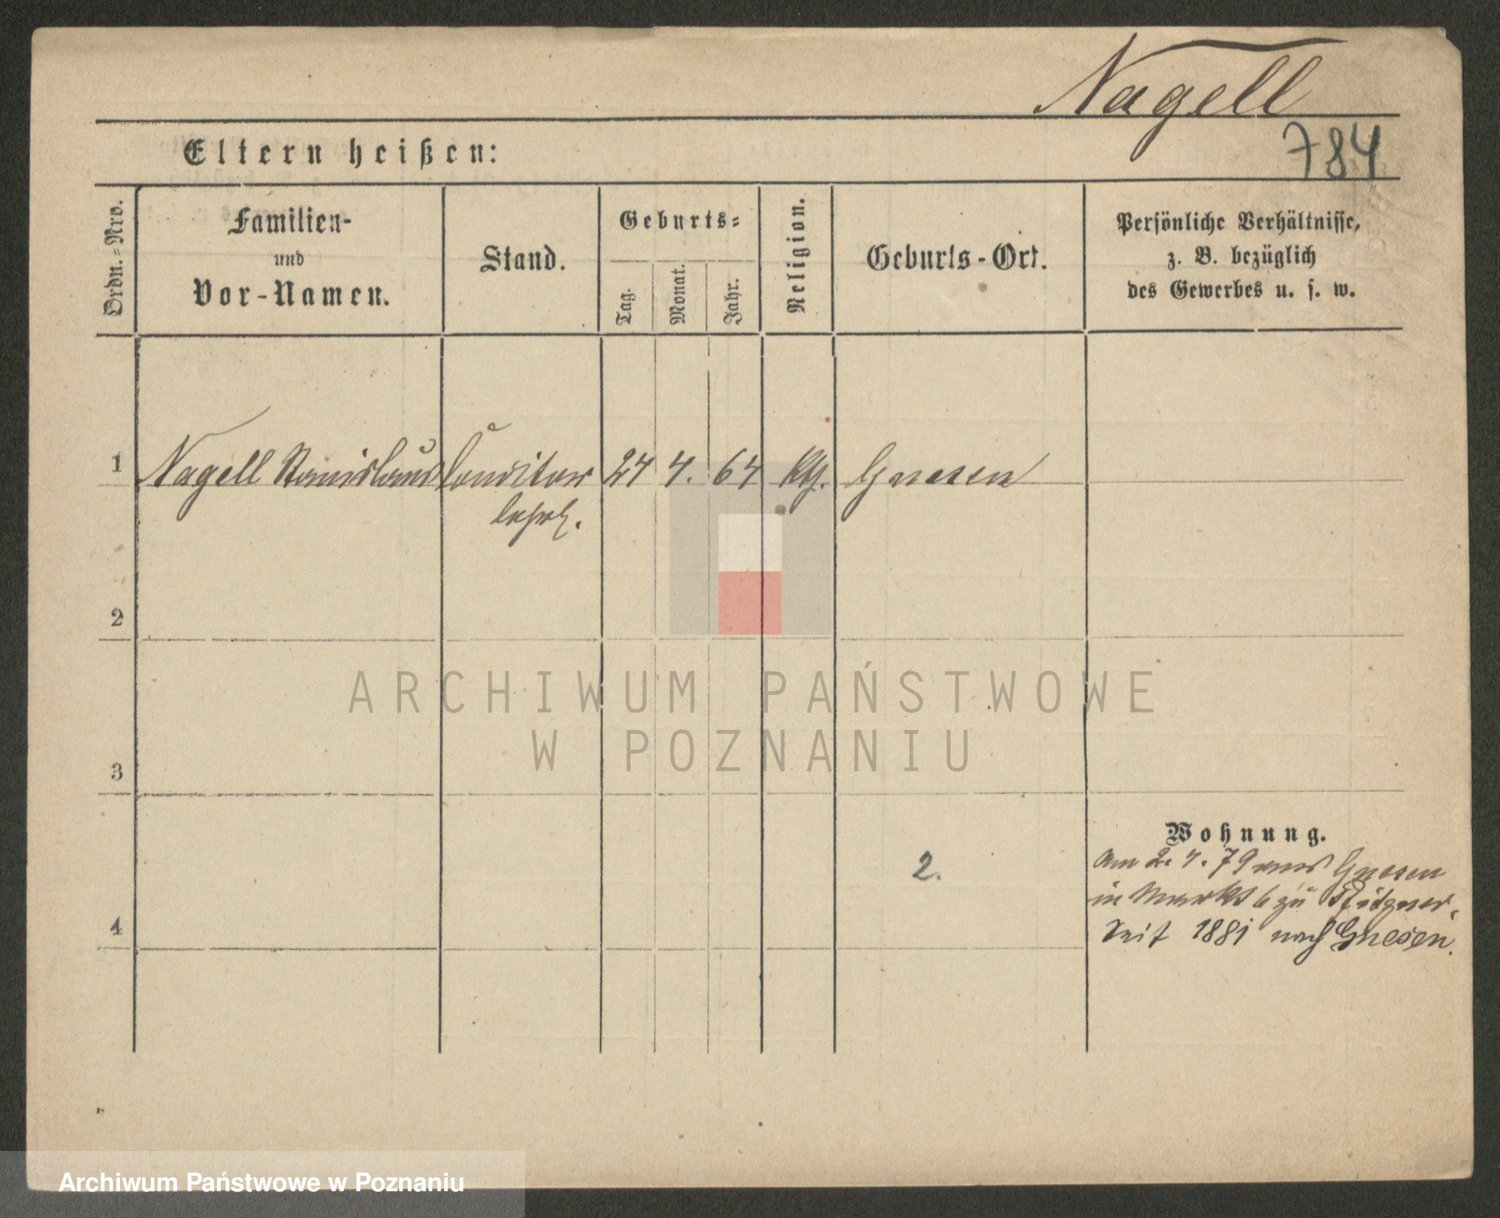 Nagell
784
Eltern heißen:
Ordn.=Nro.
Familien-
und
Vor-Namen.
Stand.
Geburts=
Tag.
Monat.
Jahr.
Religion.
Geburts-Ort.
Persönliche Verhältnisse,
z. B. bezüglich
des Gewerbes u. s. w.
1 Nagell Stanislaus Conditor 24 4. 64 kth. Gnesen
lehrl.
2
3
Wohnung.
2.
am 2. 4. 79 aus Gnesen
in Markt 6 zu
4
Seit 1881 nach Gnesen.
ARCHIWUM PAŃSTWOWE
W POZNANIU
Archiwum Państwowe w Poznaniu